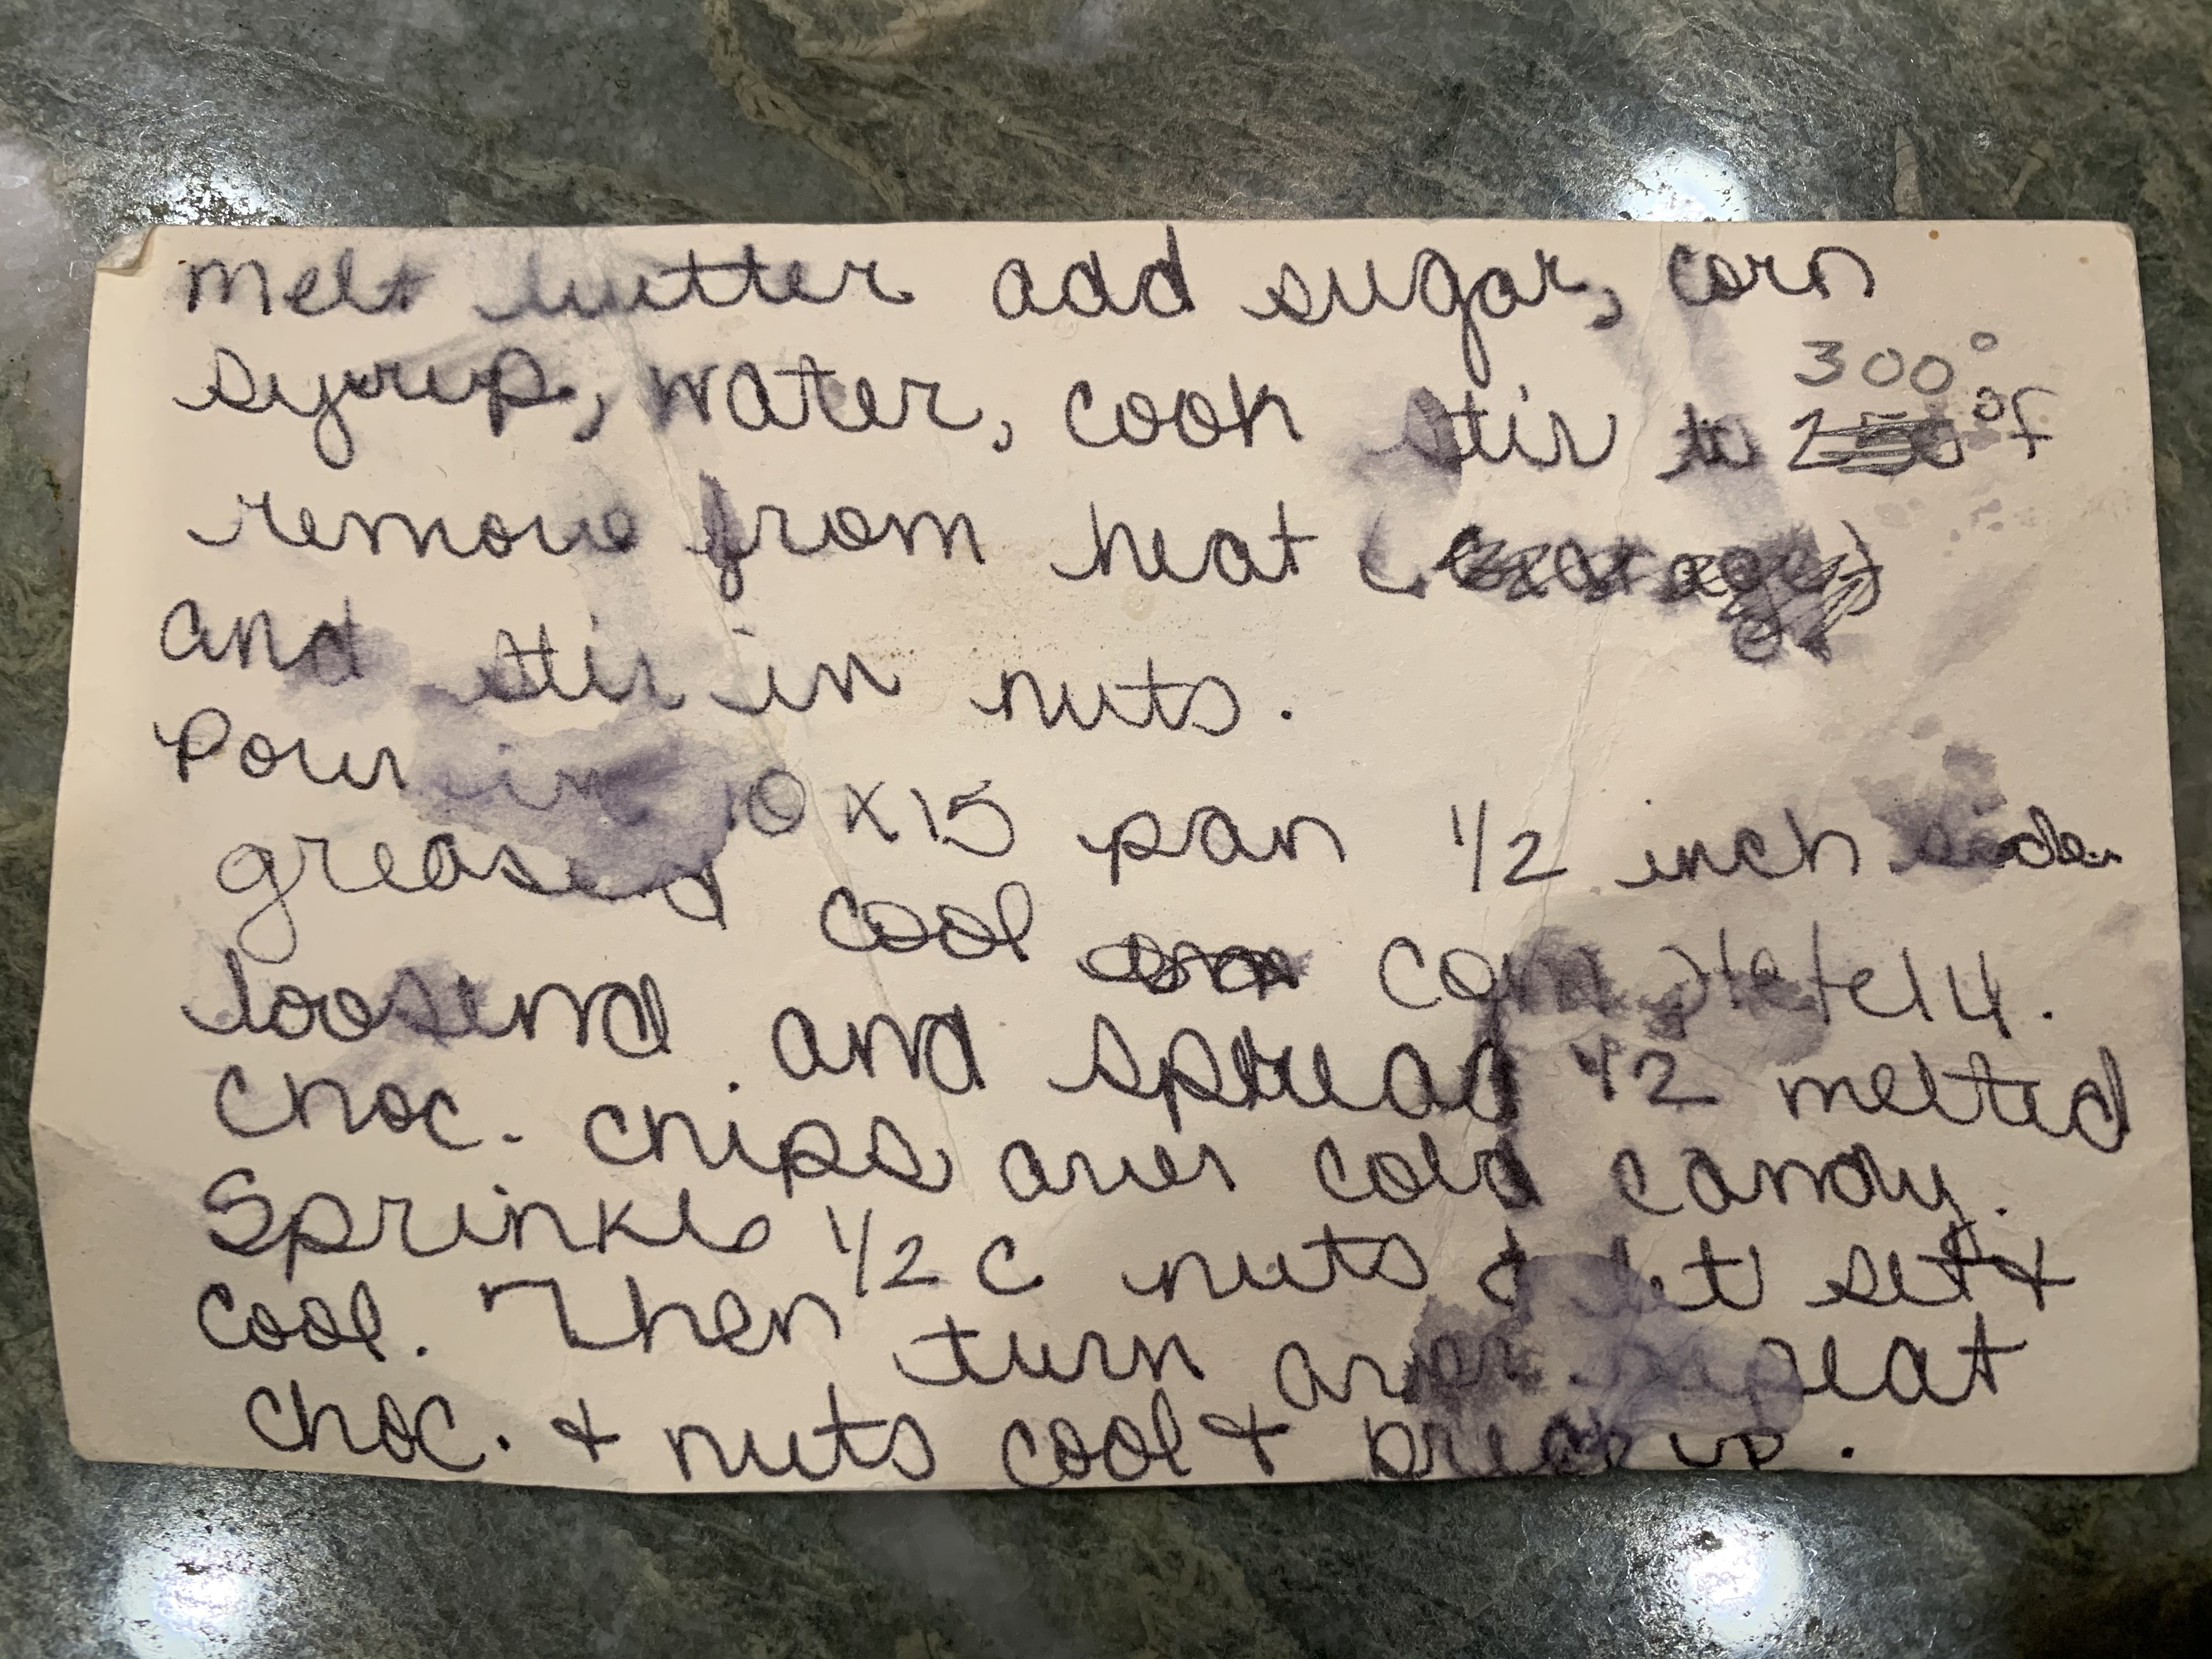 melt butter add sugar, corn
syrup, water, cook stir to 300°
°F
remove from heat
and stir in nuts.
Pour in 10 x 15 pan 1/2 inch side
greased cool completely.
loosend. and spread 1/2 melted
choc. chips over cold candy.
Sprinkle 1/2 c nuts & let set &
cool. Then turn over repeat
choc. & nuts cool & break up.